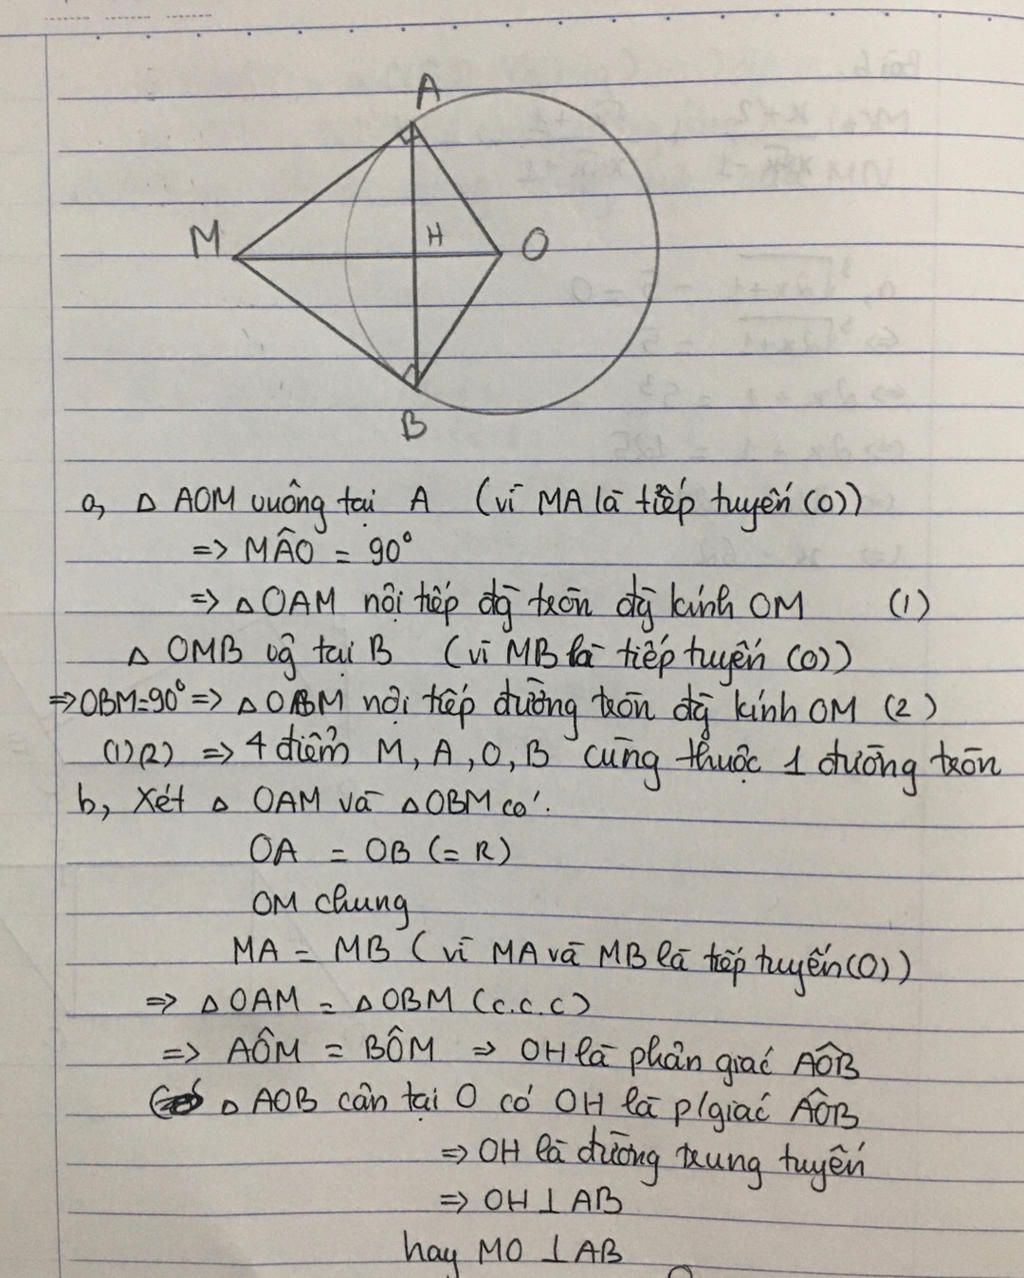 A
M
H
O
B
a, Δ AOM vuông tại A (vì MA là tiếp tuyến (O))
=> MÂO = 90°
=> Δ OAM nội tiếp đg̀ tròn đg̀ kính OM (1)
Δ OMB vg̃ tại B (vì MB là tiếp tuyến (O))
=> OBM = 90° => Δ OBM nội tiếp đường tròn đg̀ kính OM (2)
(1)(2) => 4 điểm M, A, O, B cùng thuộc 1 đường tròn
b, Xét Δ OAM và Δ OBM có:
OA = OB (= R)
OM chung
MA = MB (vì MA và MB là tiếp tuyến (O))
=> Δ OAM = Δ OBM (c.c.c)
=> AÔM = BÔM => OH là phân giác AÔB
Δ AOB cân tại O có OH là p/giác AÔB
=> OH là đường trung tuyến
=> OH ⊥ AB
hay MO ⊥ AB